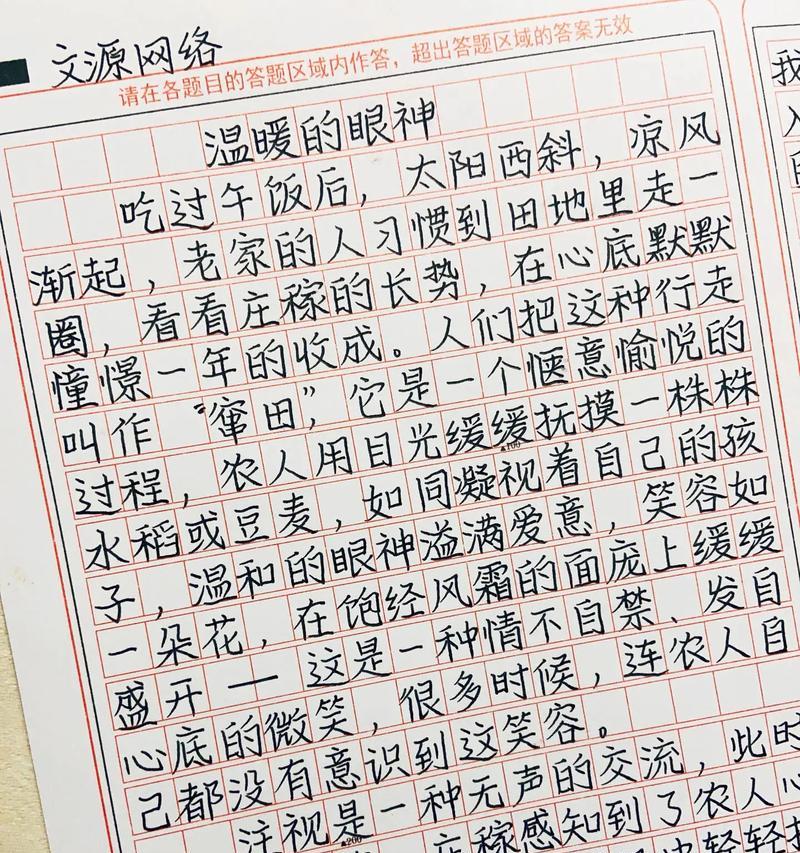 文源网络
请在各题目的答题区域内作答，超出答题区域的答案无效
温暖的眼神
吃过午饭后，太阳西斜，凉风
渐起，老家的人习惯到田地里走一
圈，看看庄稼的长势，在心底默默
憧憬一年的收成。人们把这种行走
叫作“窜田”，它是一个惬意愉悦的
过程，农人用目光缓缓抚摸一株株
▲100
水稻或豆麦，如同凝视着自己的孩
子，温和的眼神溢满爱意，笑容如
一朵花，在饱经风霜的面庞上缓缓
盛开——这是一种情不自禁、发自
心底的微笑，很多时候，连农人自
己都没有意识到这笑容。
注视是一种无声的交流，此时
▲200
庄稼感知到了农人心
轻轻
我